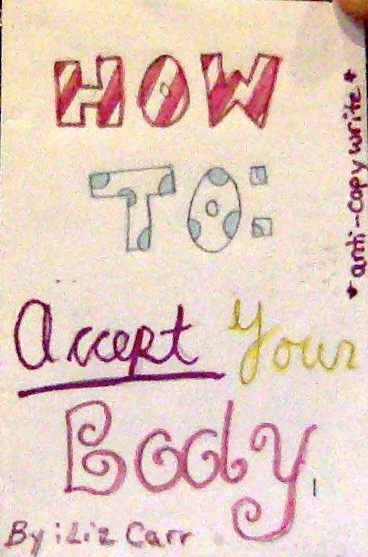 HOW
TO:
Accept Your
Body
By: Liz Carr
*anti-copywrite*